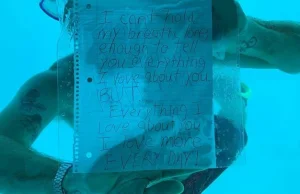 I can't hold
my breath long
enough to tell
you everything
I love about you
BUT
Everything I
love about you
I love more
EVERY DAY!